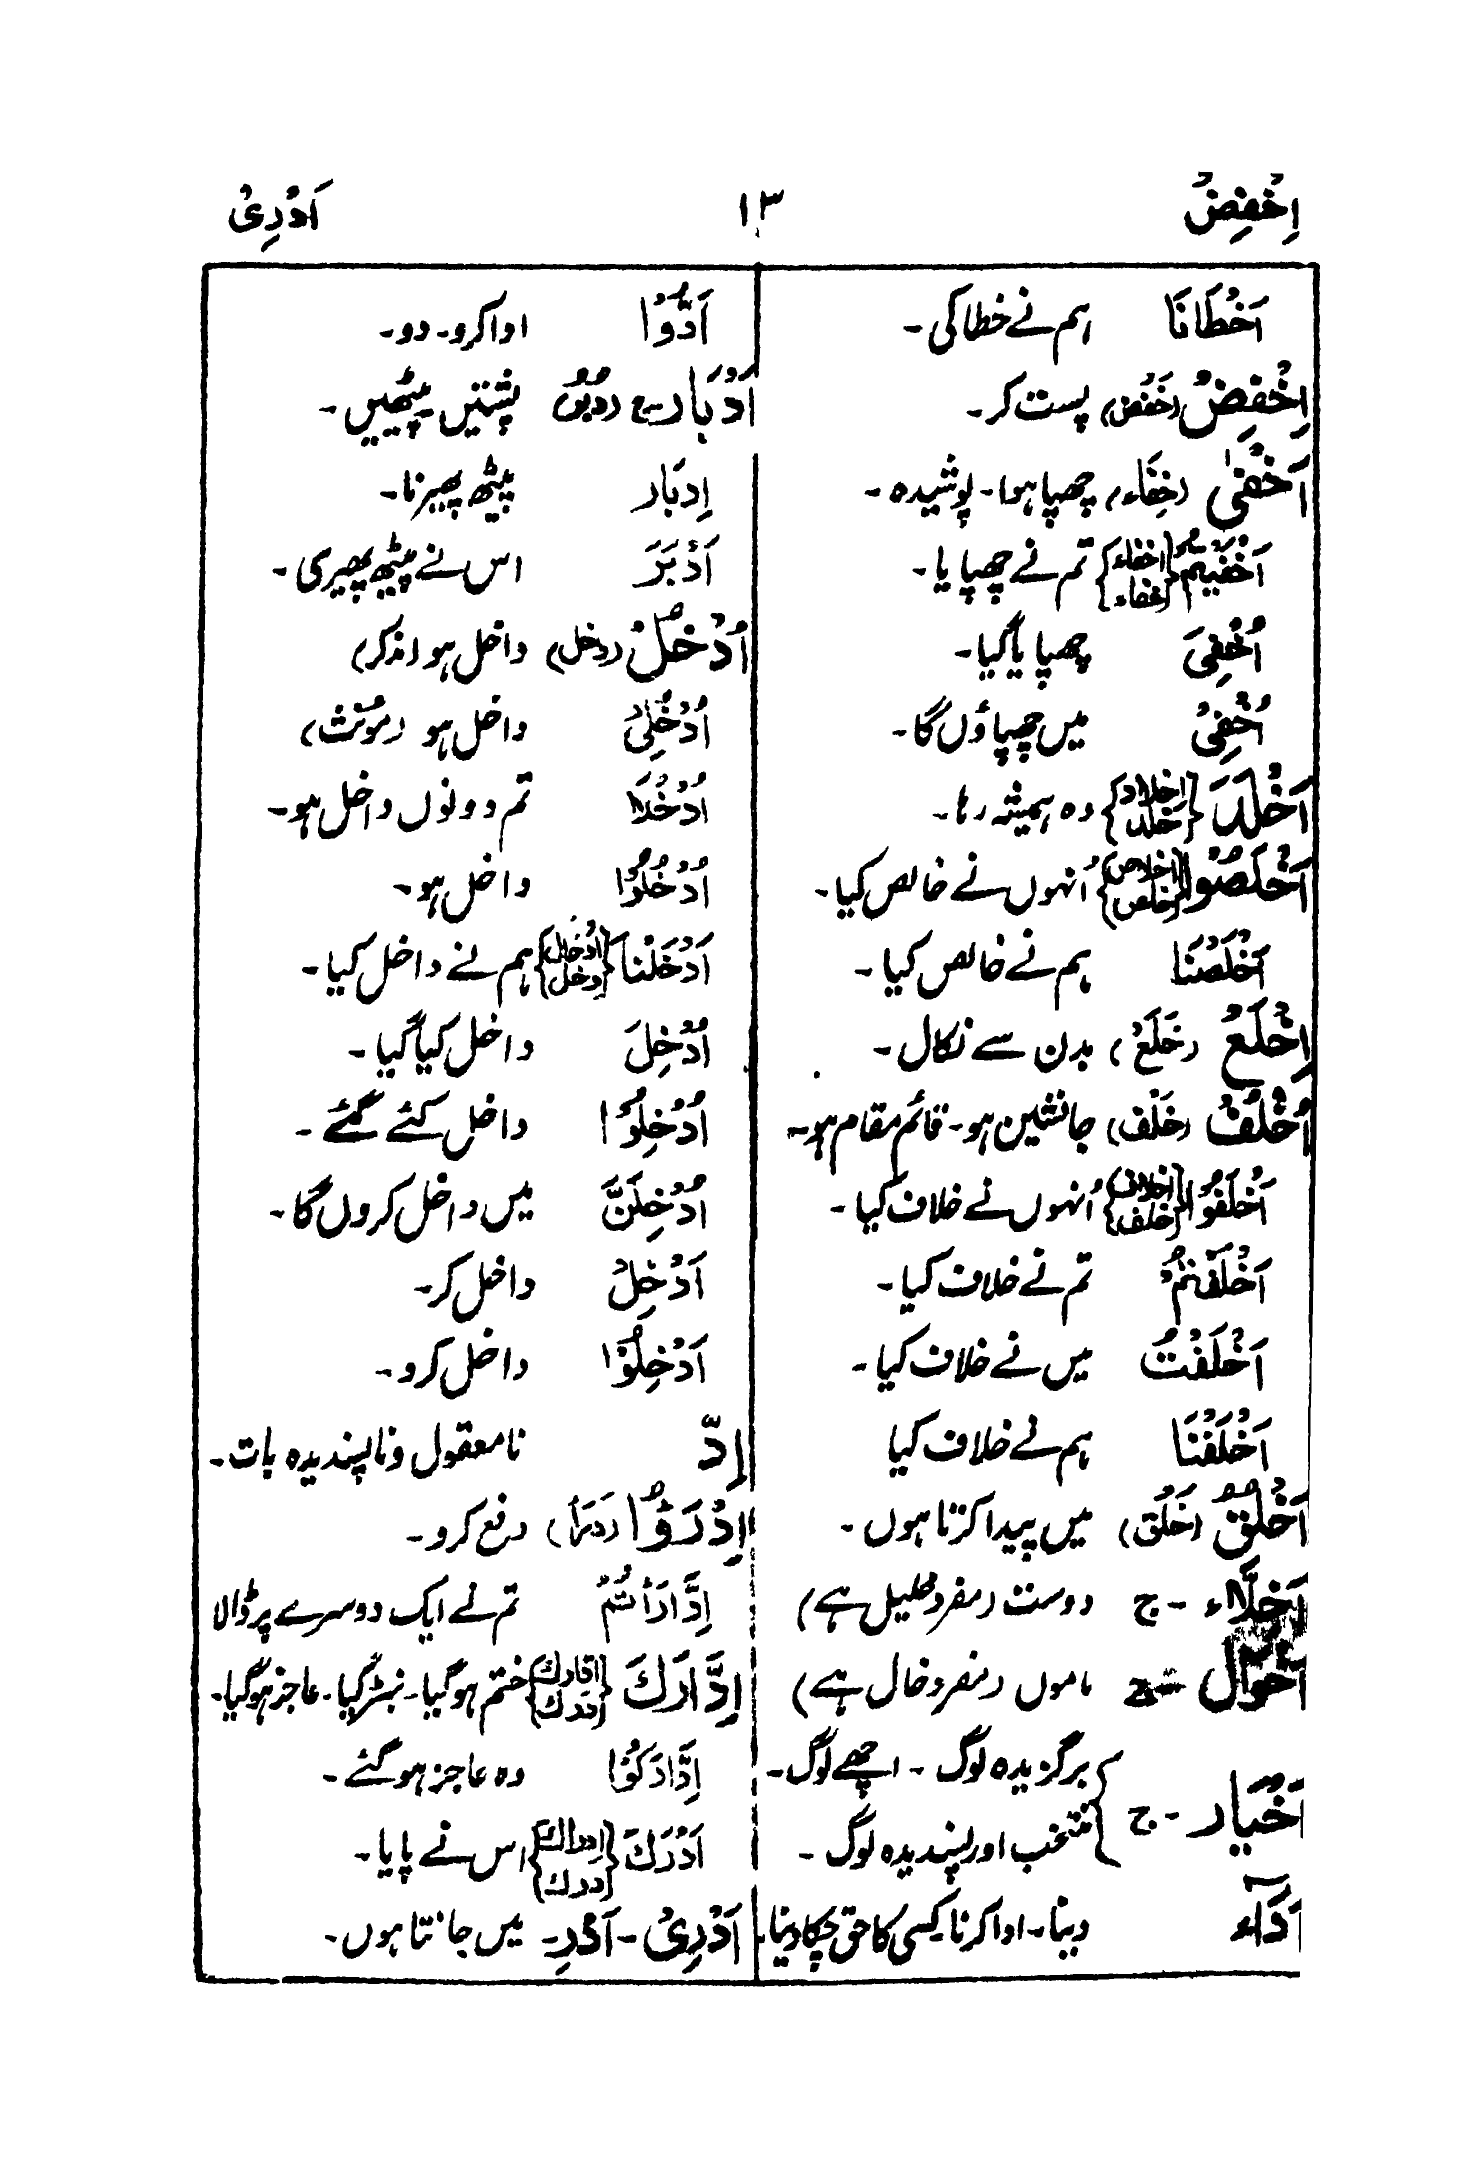 اِخْفِضْ ١٣ اَدْرِیْ
اَخْطَانَا ہم نے خطا کی۔
اِخْفِضْ (خَفْض) پست کر۔
اَخْفٰی (خِفَاء) چھپا ہوا۔ پوشیدہ۔
اَخْفَیْتُمْ {اخفاء خفاء} تم نے چھپایا۔
اُخْفِیَ چھپایا گیا۔
اُخْفِیْ میں چھپاؤں گا۔
اَخْلَدَ {اخلاد خلد} وہ ہمیشہ رہا۔
اَخْلَصُوْا {اخلاص خلص} اُنہوں نے خالص کیا۔
اَخْلَصْنَا ہم نے خالص کیا۔
اِخْلَعْ (خَلْعْ) بدن سے نکال۔
اُخْلُفْ (خَلْف) جانشین ہو۔ قائم مقام ہو۔
اَخْلَفُوْا {اخلاف خلف} اُنہوں نے خلاف کیا۔
اَخْلَفْتُمْ تم نے خلاف کیا۔
اَخْلَفْتُ میں نے خلاف کیا۔
اَخْلَفْنَا ہم نے خلاف کیا
اَخْلُقُ (خَلْق) میں پیدا کرتا ہوں۔
اَخِلَّاء۔ ج دوست (مفرد خلیل ہے)
اَخْوَال۔ ج ماموں (مفرد خال ہے)
اَخْیَار۔ ج } برگزیدہ لوگ۔ اچھے لوگ۔
منتخب اور پسندیدہ لوگ۔
اَدَآء دینا۔ ادا کرنا کسی کا حق چکا دینا۔
اَدُّوْا ادا کرو۔ دو۔
اَدْبَار۔ ج (دُبُر) پشتیں۔ پیٹھیں۔
اِدبَار پیٹھ پھیرنا۔
اَدْبَرَ اس نے پیٹھ پھیری۔
اُدْخُلْ (دخل) داخل ہو (مذکر)
اُدْخُلِیْ داخل ہو (مؤنث)
اُدْخُلَا تم دونوں داخل ہو۔
اُدْخُلُوْا داخل ہو۔
اَدْخَلْنَا {ادخال دخل} ہم نے داخل کیا۔
اُدْخِلَ داخل کیا گیا۔
اُدْخِلُوْا داخل کئے گئے۔
اُدْخِلَنَّ میں داخل کروں گا۔
اَدْخِلْ داخل کر۔
اَدْخِلُوْا داخل کرو۔
اِدّ نامعقول و ناپسندیدہ بات۔
اِدْرَؤُا (دَرَأ) دفع کرو۔
اِدّٰارَأتُمْ تم نے ایک دوسرے پر ڈالا
اِدّٰارَكَ {ادارك درك} ختم ہو گیا۔ نبڑ گیا۔ عاجز ہو گیا۔
اِدّٰارَكُوْا وہ عاجز ہو گئے۔
اَدْرَكَ {ادراك درك} اس نے پایا۔
اَدْرِیْ۔ اَدْرِ۔ میں جانتا ہوں۔